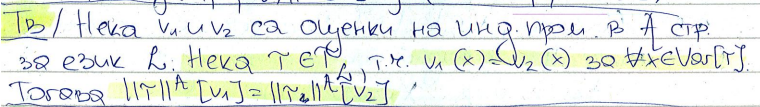 Тв/ Нека v₁ и v₂ са оценки на инд. пром. в A стр.
за език L. Нека τ ∈ T_L, т.ч. v₁(x) = v₂(x) за ∀x∈Var[τ].
Тогава ||τ||ᴬ[v₁] = ||τ₂||ᴬ[v₂]